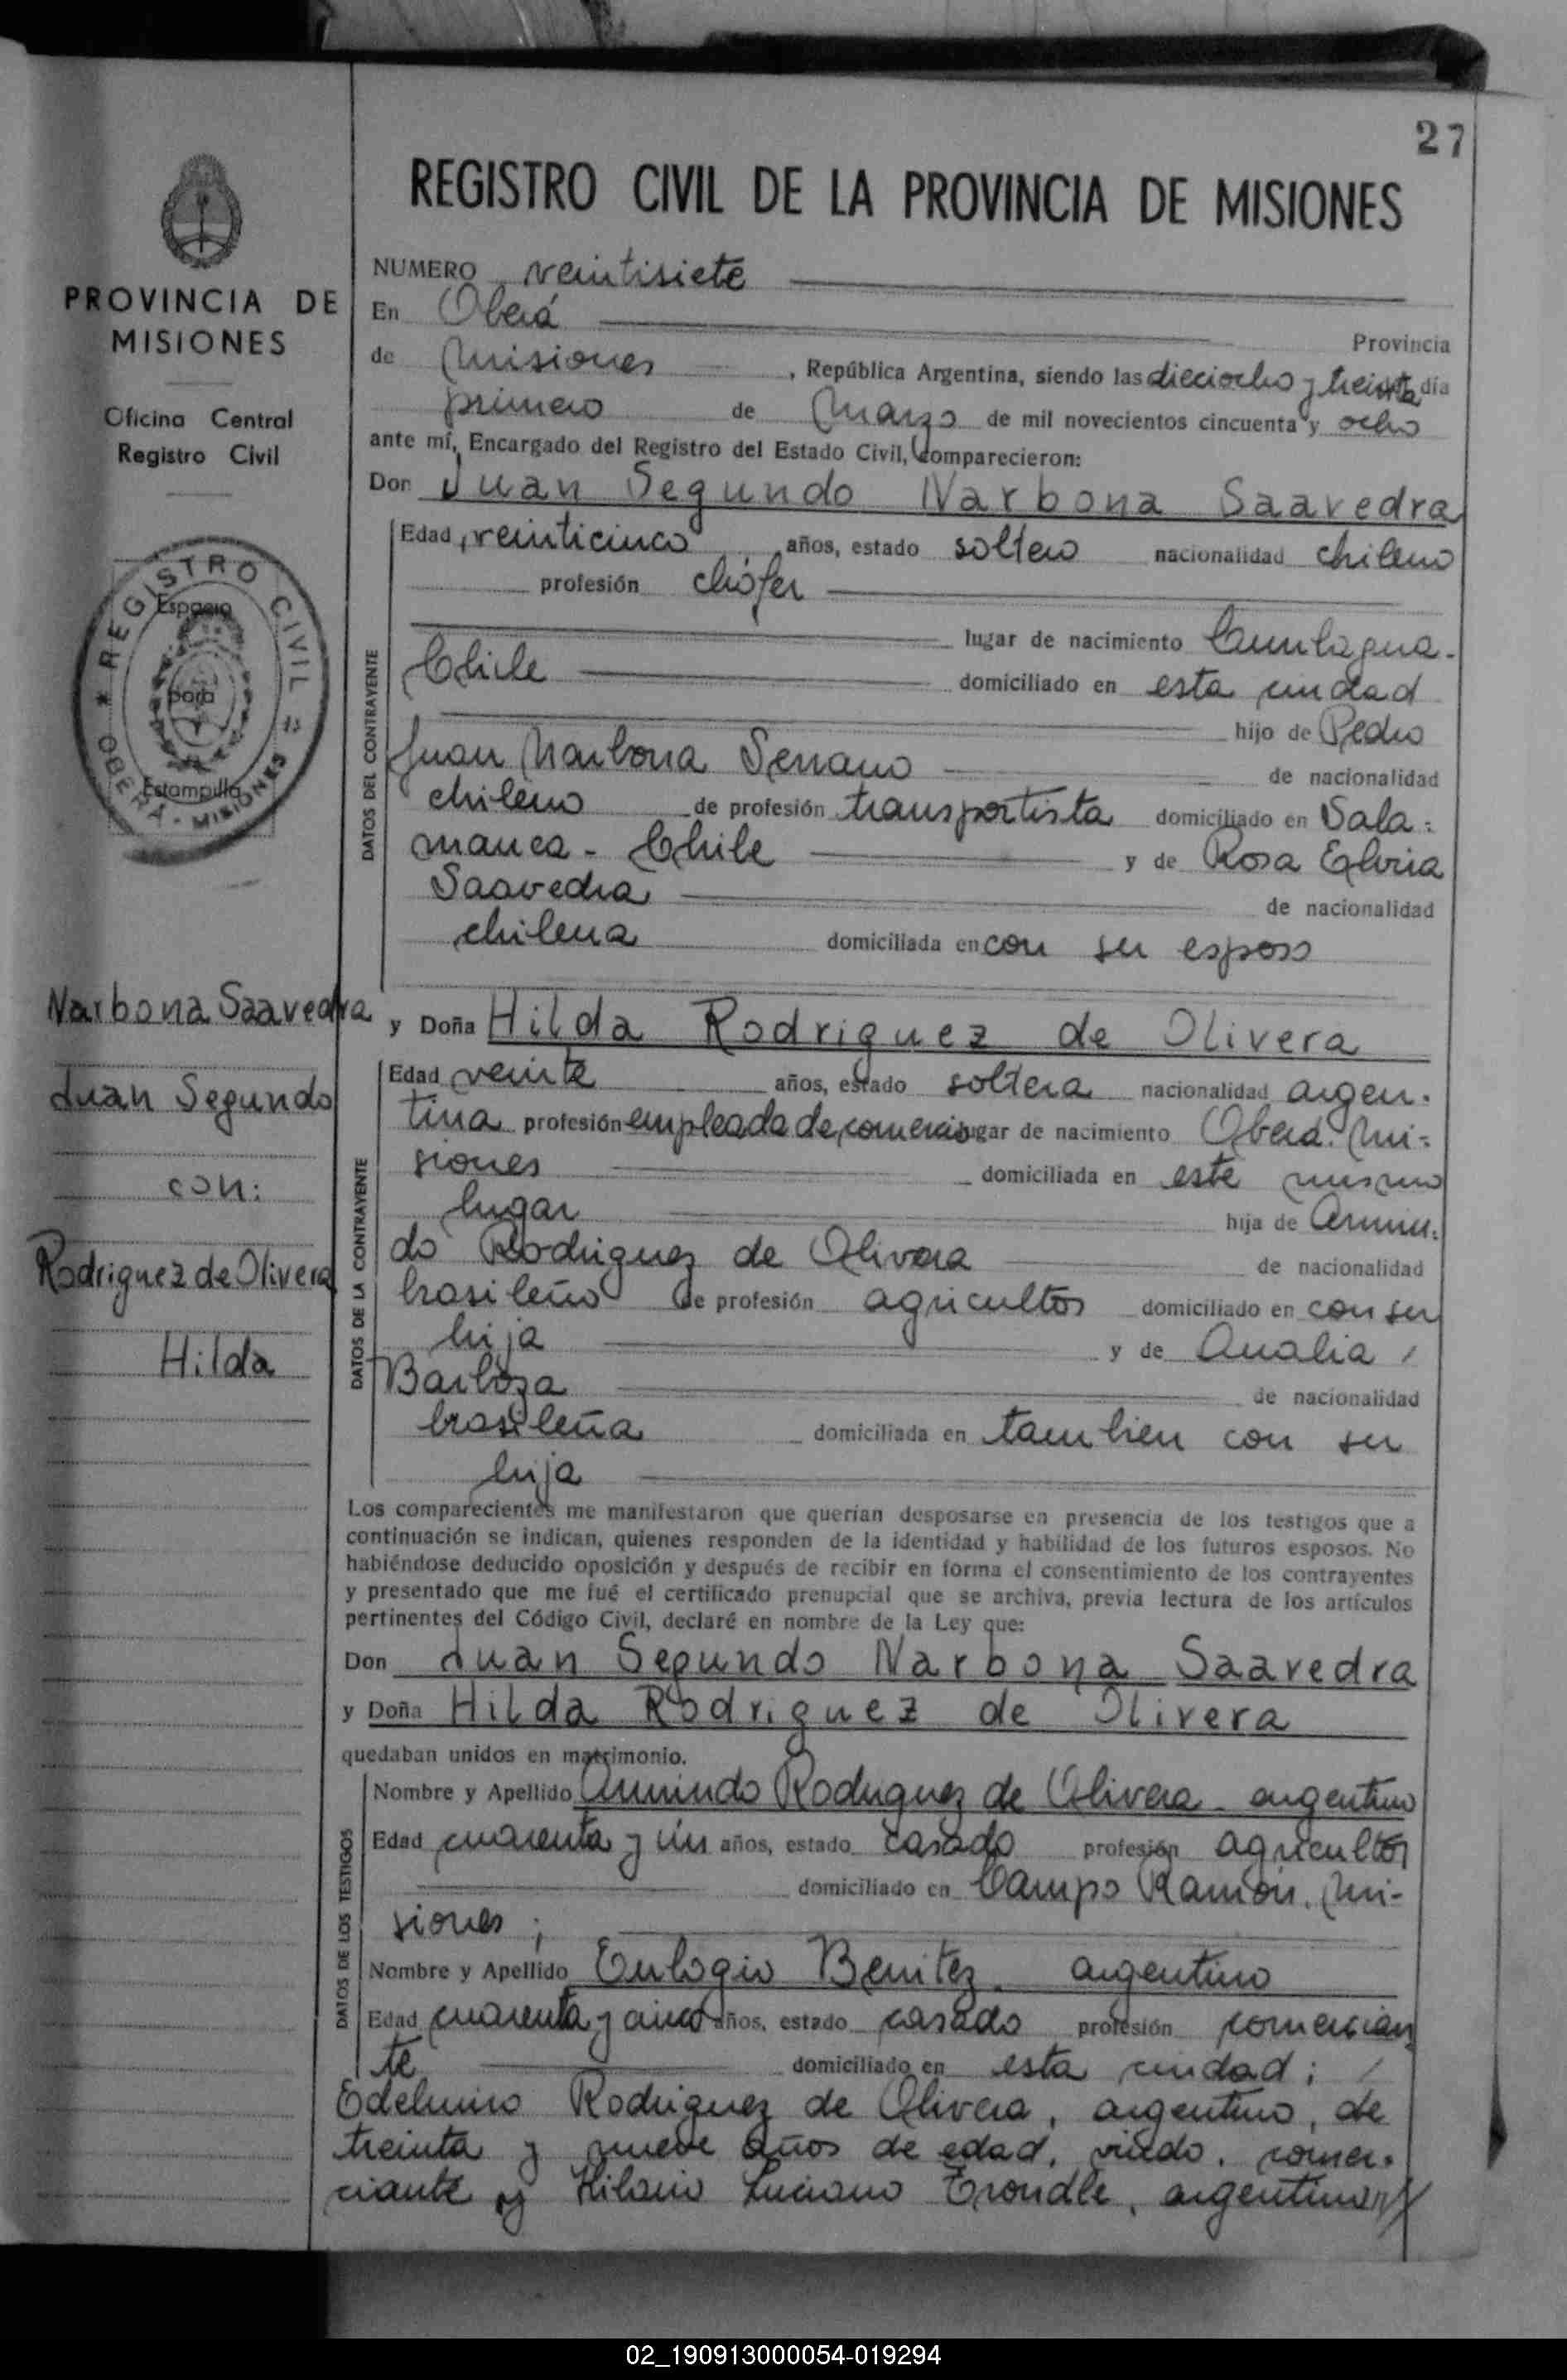 27
REGISTRO CIVIL DE LA PROVINCIA DE MISIONES
PROVINCIA DE
MISIONES
Oficina Central
Registro Civil
REGISTRO CIVIL
OBERA - MISIONES
Espacio
para
Estampilla
Narbona Saavedra
Juan Segundo
con:
Rodriguez de Olivera
Hilda
NUMERO veintisiete
En Oberá
Provincia
de Misiones , República Argentina, siendo las dieciocho y treinta día
primero de Marzo de mil novecientos cincuenta y ocho
ante mí, Encargado del Registro del Estado Civil, comparecieron:
Don Juan Segundo Narbona Saavedra
DATOS DEL CONTRAYENTE
Edad veinticinco años, estado soltero nacionalidad chileno
profesión chófer
lugar de nacimiento
Chile domiciliado en esta ciudad
hijo de Pedro
Juan Narbona Serrano de nacionalidad
chileno de profesión transportista domiciliado en Sala-
manca - Chile y de Rosa Elvira
Saavedra de nacionalidad
chilena domiciliada en con su esposo
y Doña Hilda Rodriguez de Olivera
DATOS DE LA CONTRAYENTE
Edad veinte años, estado soltera nacionalidad argen-
tina profesión empleada de comercio lugar de nacimiento Oberá. Mi-
siones domiciliada en este mismo
lugar hija de Armin-
do Rodriguez de Olivera de nacionalidad
brasileño de profesión agricultor domiciliado en con su
hija y de Analia
Barboza de nacionalidad
brasileña domiciliada en tambien con su
hija
Los comparecientes me manifestaron que querían desposarse en presencia de los testigos que a
continuación se indican, quienes responden de la identidad y habilidad de los futuros esposos. No
habiéndose deducido oposición y después de recibir en forma el consentimiento de los contrayentes
y presentado que me fué el certificado prenupcial que se archiva, previa lectura de los artículos
pertinentes del Código Civil, declaré en nombre de la Ley que:
Don Juan Segundo Narbona Saavedra
y Doña Hilda Rodriguez de Olivera
quedaban unidos en matrimonio.
DATOS DE LOS TESTIGOS
Nombre y Apellido Armindo Rodriguez de Olivera - argentino
Edad cuarenta y un años, estado casado profesión agricultor
domiciliado en Campo Ramón. Mi-
siones ;
Nombre y Apellido Eulogio Benitez. argentino
Edad cuarenta y cinco años, estado casado profesión comercian
te domiciliado en esta ciudad;
Edelmiro Rodriguez de Olivera, argentino, de
treinta y nueve años de edad, viudo, comer-
ciante y Hilario Luciano Trondle, argentino
02_190913000054-019294